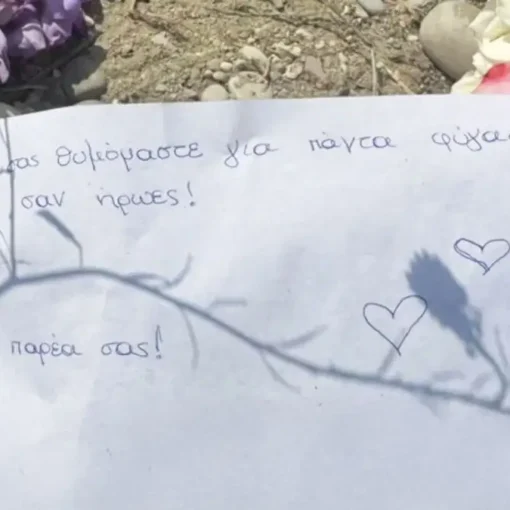 σας θυμόμαστε για πάντα φύγα
σαν ήρωες!
παρέα σας!